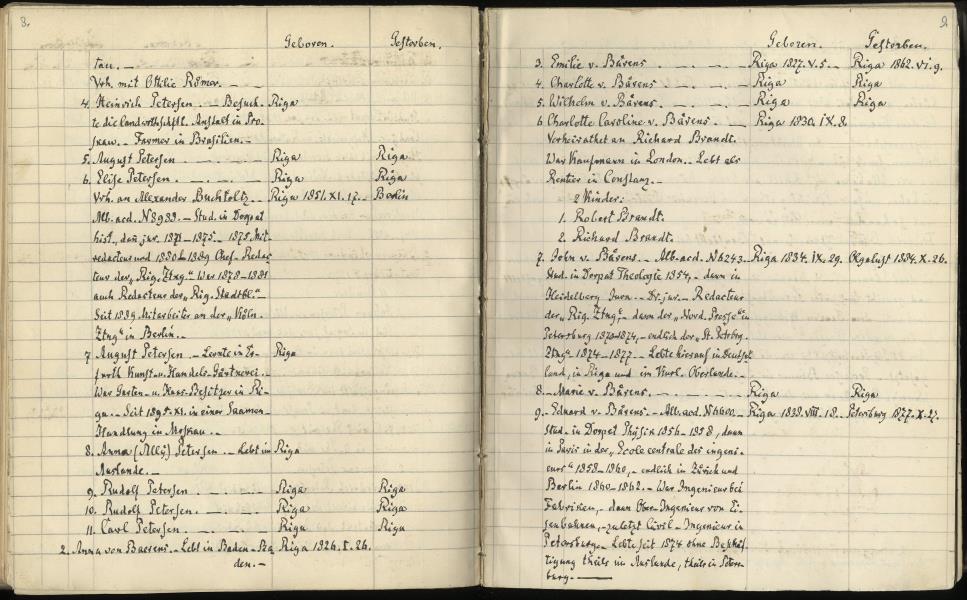 8.
Geboren. Gestorben.
tau. —
Vrh. mit Ottilie Römer. —
4. Heinrich Petersen. — Besuch- Riga
te die landwirthschftl. Anstalt in Pro-
skau. — Farmer in Brasilien. —
5. August Petersen. —. —. — Riga Riga
6. Elise Petersen. —. —. — Riga Riga
Vrh. an Alexander Buchholtz. — Riga 1851. XI. 17. Berlin
Alb. acd. N 8989. — Stud. in Dorpat
hist., dan jur. 1871 — 1875. — 1875. Mit-
redacteur und 1880 — 1889 Chef-Redac-
teur der „Rig. Ztng." War 1878 — 1881
auch Redacteur der „Rig. Stadtbl."
Seit 1889 Mitarbeiter an der „Köln.
Ztng" in Berlin. —
7. August Petersen. — Lernte in Er- Riga
furth Kunst- u. Handels-Gärtnerei. —
War Garten- u. Haus-Besitzer in Ri-
ga. — Seit 1895. XI. in einer Saamen-
Handlung in Moskau. —
8. Anna (Ally) Petersen. — Lebt im Riga
Auslande. —
9. Rudolf Petersen. —. —. Riga Riga
10. Rudolf Petersen. —. —. Riga Riga
11. Carl Petersen. —. —. Riga Riga
2. Anna von Baerens. — Lebt in Baden-Ba- Riga 1826. I. 26.
den. —
9.
Geboren. Gestorben.
3. Emilie v. Bärens. —. —. — Riga 1827. V. 5. — Riga 1862. VI. 9.
4. Charlotte v. Bärens. —. —. — Riga Riga
5. Wilhelm v. Bärens. —. —. — Riga Riga
6. Charlotte Caroline v. Bärens. —. — Riga 1830. IX. 8.
Verheirathet an Richard Brandt.
War Kaufmann in London. Lebt als
Rentier in Constanz. —
2 Kinder:
1. Robert Brandt.
2. Richard Brandt.
7. John v. Bärens. — Alb. acd. N 6243. — Riga 1834. IX. 29. 1884. X. 26.
Stud. in Dorpat Theologie 1854, — dann in
Heidelberg Jura. — Dr. jur. — Redacteur
der „Rig. Ztng", — dann der „Nord. Presse" in
Petersburg 1870-1874, — endlich der „St. Petrbrg.
Ztng" 1874 — 1877. — Lebte hierauf in Deutsch-
land, in Riga und im Kurl. Oberlande. —
8. Marie v. Bärens. —. —. — Riga Riga
9. Eduard v. Bärens. — Alb. acd. N 6600. — Riga 1838. VIII. 18. Petersburg 1877. X. 27.
Stud. in Dorpat Physik 1856 — 1858, dann
in Paris in der „Ecole centrale des ingeni-
eurs" 1858 — 1860, — endlich in Zürich und
Berlin 1860 — 1862. — War Ingenieur bei
Fabriken, — dann Ober-Ingenieur von Ei-
senbahnen, — zuletzt Civil-Ingenieur in
Petersburg. — Lebte seit 1874 ohne Beschäf-
tigung theils im Auslande, theils in Peters-
burg. —